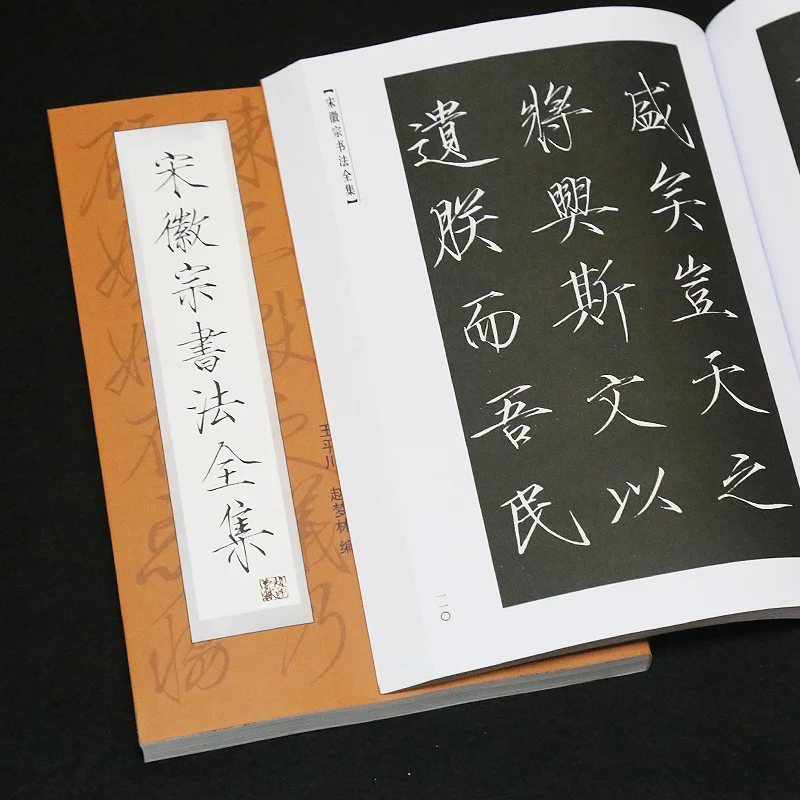 宋徽宗書法全集
王平川 赵梦林 编
【宋徽宗书法全集】
盛矣豈天之
將興斯文以
遺朕而吾民
一二〇